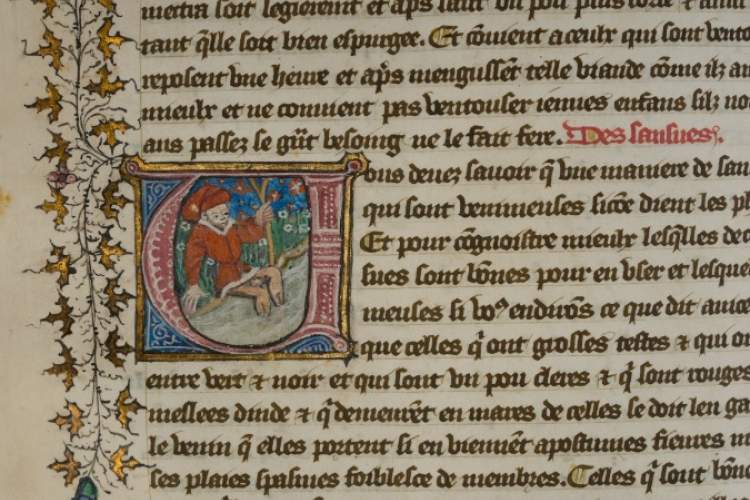 mectra soit legierement et ap̄s faut vn pou plus forte ⁊ ainsi
tant q̄lle soit bien espurgee. Et cōuient a ceulx qui sont vento
reposent vne heure et ap̄s mengussēt telle viande cōme ilz au
mieulx et ne conuient pas ventouser ieunes enfans silz no
ans passez se grāt besoing ne le fait fere. Des sansues.
Vous deuez sauoir q̄ vne maniere de san
qui sont venimeuses sicōe dient les ph
Et pour cōgnoistre mieulx lesq̄lles de
sues sont bōnes pour en vser et lesque
meuses si voꝰ endirōs ce que dit auice
que celles q̄ ont grosses testes ⁊ qui o
entre vert ⁊ noir et qui sont vn pou cleres ⁊ q̄ sont rouges
meslees dinde ⁊ q̄ demeurēt en mares de celles se doit len ga
le venin q̄ elles portent si en viennēt apostumes fieures m
ses plaies spasmes foiblesce de membres. Celles q̄ sont bōne